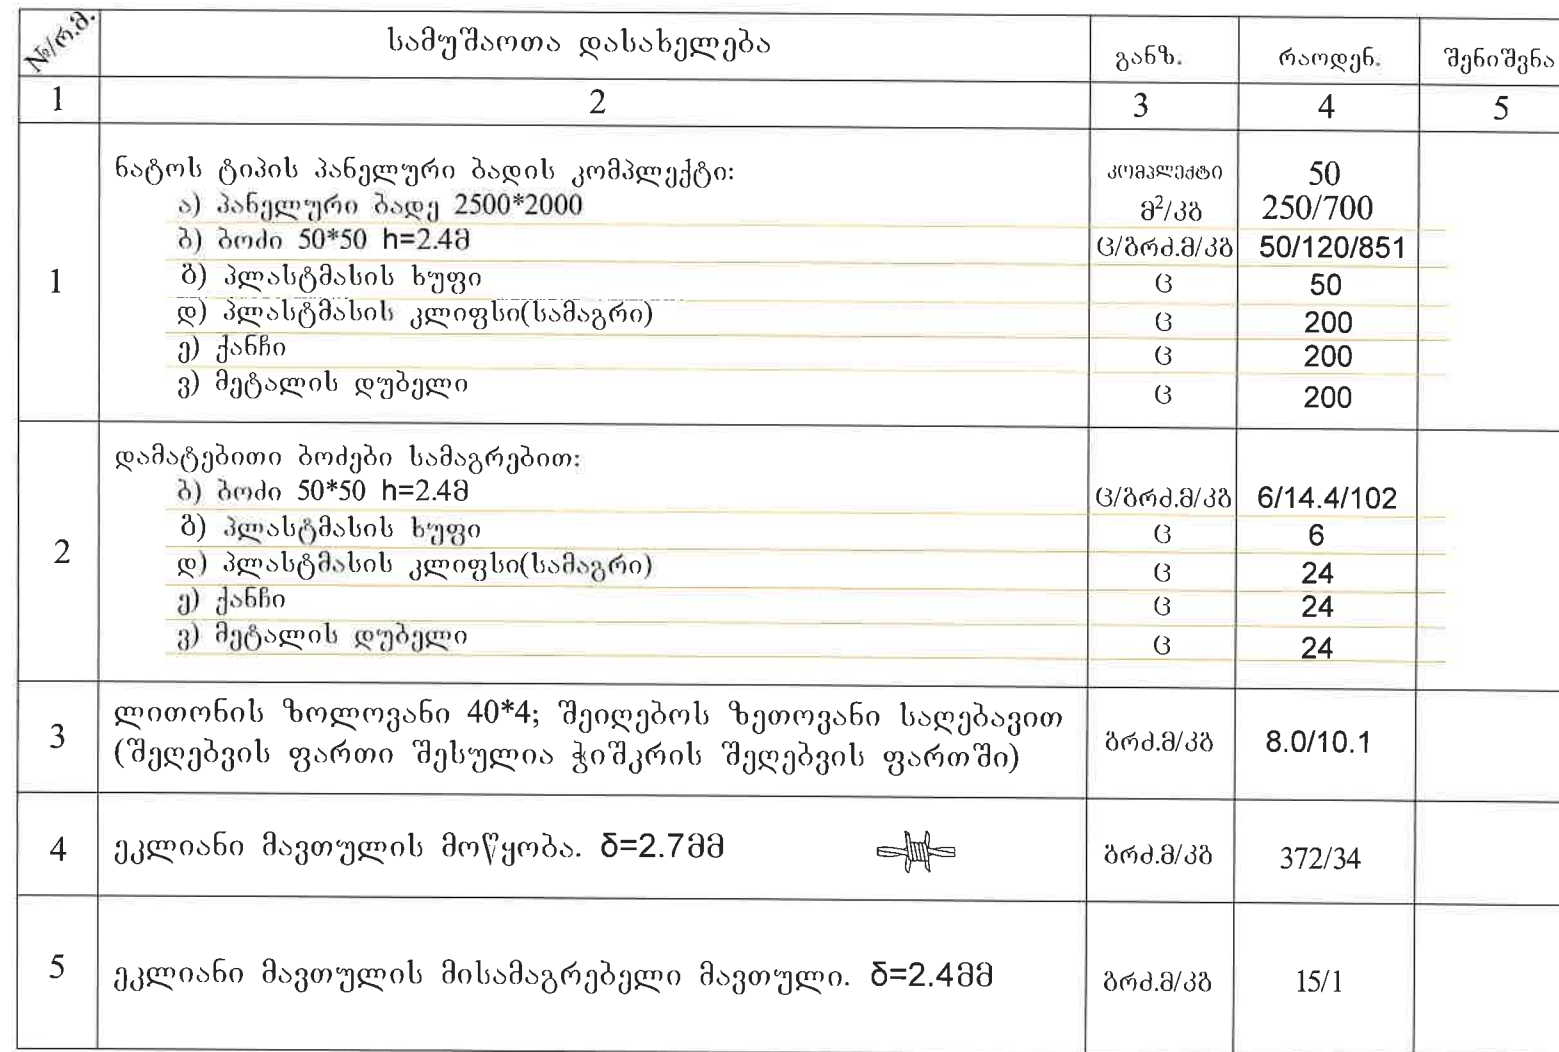 №/რ.მ. სამუშაოთა დასახელება განზ. რაოდენ. შენიშვნა
1 2 3 4 5
1 ნატოს ტიპის პანელური ბადის კომპლექტი: კომპლექტი 50
ა) პანელური ბადე 2500*2000 მ²/კგ 250/700
ბ) ბოძი 50*50 h=2.4მ ც/გრძ.მ/კგ 50/120/851
გ) პლასტმასის ხუფი ც 50
დ) პლასტმასის კლიფსი(სამაგრი) ც 200
ე) ქანჩი ც 200
ვ) მეტალის დუბელი ც 200
2 დამატებითი ბოძები სამაგრებით:
ბ) ბოძი 50*50 h=2.4მ ც/გრძ.მ/კგ 6/14.4/102
გ) პლასტმასის ხუფი ც 6
დ) პლასტმასის კლიფსი(სამაგრი) ც 24
ე) ქანჩი ც 24
ვ) მეტალის დუბელი ც 24
3 ლითონის ზოლოვანი 40*4; შეიღებოს ზეთოვანი საღებავით გრძ.მ/კგ 8.0/10.1
(შეღებვის ფართი შესულია ჭიშკრის შეღებვის ფართში)
4 ეკლიანი მავთულის მოწყობა. δ=2.7მმ გრძ.მ/კგ 372/34
5 ეკლიანი მავთულის მისამაგრებელი მავთული. δ=2.4მმ გრძ.მ/კგ 15/1